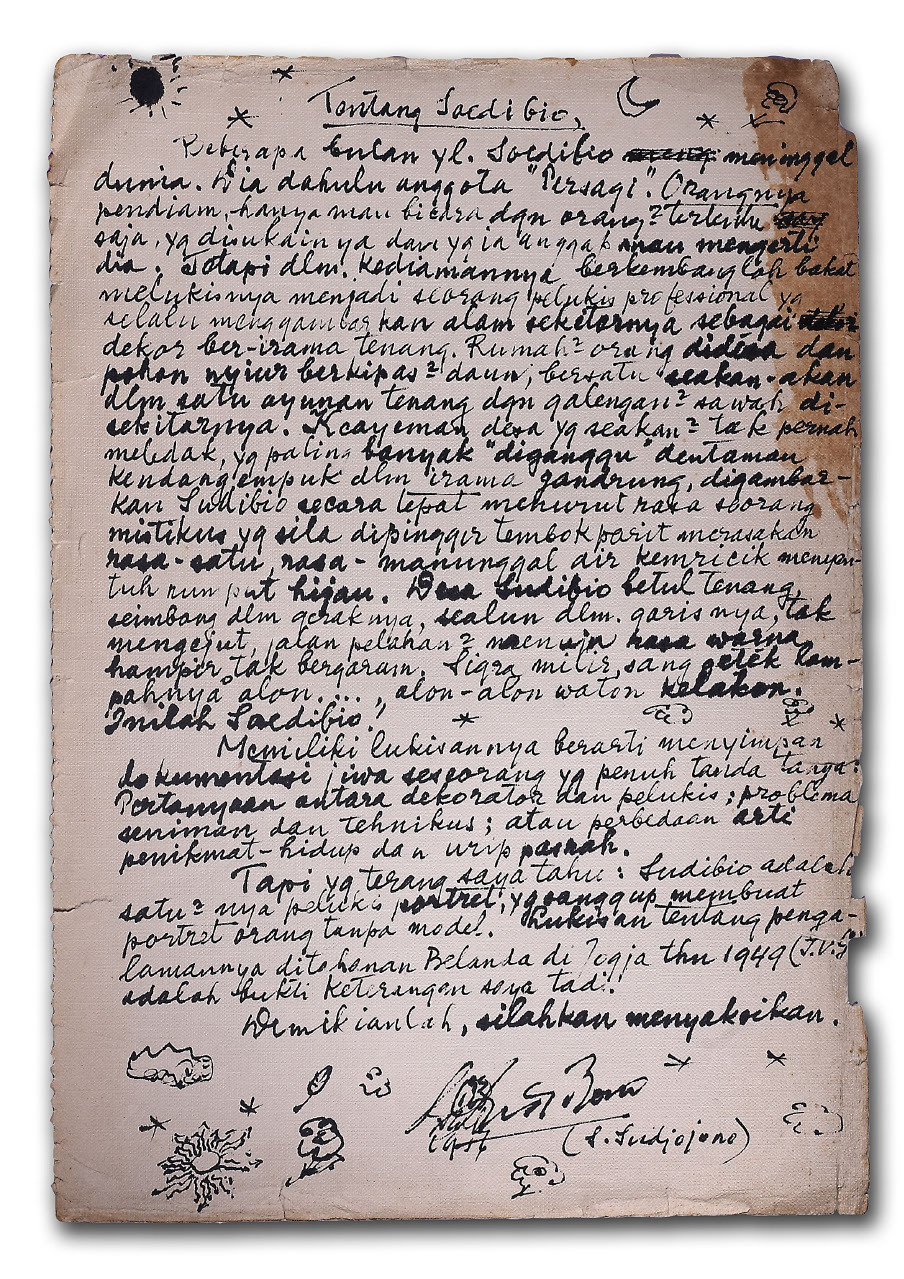 Tentang Soedibio,
Beberapa bulan yl. Soedibio meninggal
dunia. Dia dahulu anggota "Persagi". Orangnya
pendiam, hanya mau bicara dgn orang² tertentu
saja, yg disukainya dan yg ia anggap mau mengerti
dia. Tetapi dlm. kediamannya berkembanglah bakat
melukisnya menjadi seorang pelukis professional yg
selalu menggambarkan alam sekitarnya sebagai
dekor ber-irama tenang. Rumah² orang didesa dan
pohon nyiur berkipas² daun, bersatu seakan-akan
dlm satu ayunan tenang dgn galengan² sawah di-
sekitarnya. Kcayeman desa yg seakan² tak pernah
meledak, yg paling banyak "diganggu" dentaman
kendang empuk dlm irama gandrung, digambar-
kan Sudibio secara tepat menurut rasa seorang
mistikus yg sila dipinggir tembok parit merasakan
rasa-satu, rasa-manunggal air kemricik menyen-
tuh rumput hijau. Desa Sudibio betul tenang,
seimbang dlm geraknya, sealun dlm. garisnya, tak
mengejut, jalan pelahan² menuju rasa warna
hampir tak bergaram. Sigra milir, sang getek lam-
pahnya alon...., alon-alon waton kelakon.
Inilah Soedibio!
Memiliki lukisannya berarti menyimpan
dokumentasi jiwa seseorang yg penuh tanda tanya:
Pertanyaan antara dekorator dan pelukis; problima
seniman dan tehnikus; atau perbedaan arti
penikmat-hidup dan urip pasrah.
Tapi yg terang saya tahu: Sudibio adalah
satu²nya pelukis portret, yg sanggup membuat
portret orang tanpa model. Lukisan tentang penga-
lamannya ditahanan Belanda di Jogja thn 1949 (I.V.G)
adalah bukti keterangan saya tadi.
Demikianlah, silahkan menyaksikan.
(S. Sudjojono)